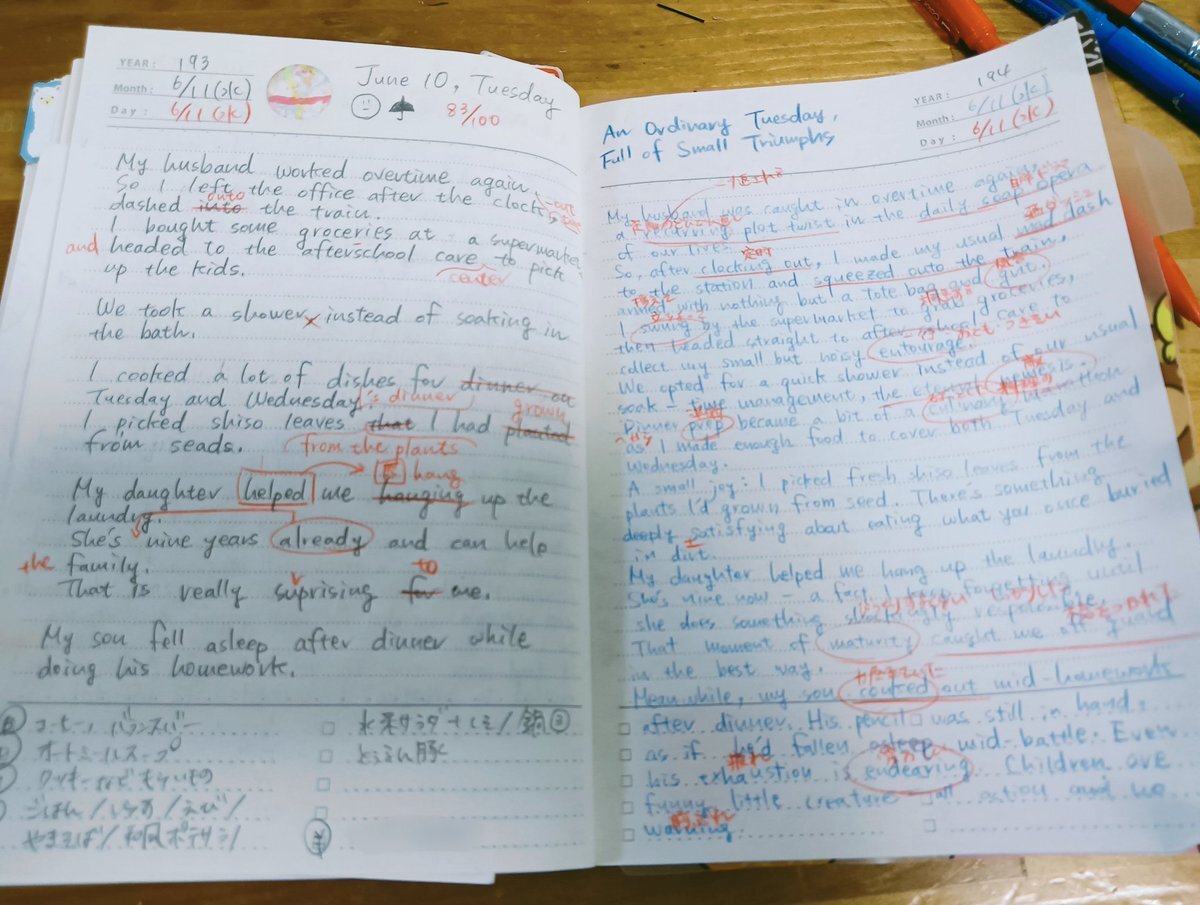 YEAR: 193
Month: 6/11(水)
Day: 6/11(水)
June 10, Tuesday
83/100
My husband worked overtime again.
So I left the office after the clock, out
onto
dashed into the train.
I bought some groceries at a supermarket
and headed to the afterschool care to pick
center
up the kids.
We took a shower, instead of soaking in
the bath.
I cooked a lot of dishes for dinner on
Tuesday and Wednesday's dinner
grown
I picked shiso leaves that I had planted
from seads. from the plants
原 hang
My daughter helped me hanging up the
laundry.
She's nine years already and can help
the family.
to
That is really suprising for me.
My son fell asleep after dinner while
doing his homework.
コーヒー/バランスバー
オートミールスープ
クッキーなど
ごはん/
水菜サラダ
とうふ
¥
YEAR: 194
Month: 6/11(水)
Day: 6/11(水)
An Ordinary Tuesday,
Full of Small Triumphs
My husband was caught in overtime again,
a recurring plot twist in the daily soap opera
of our lives. 定時
So, after clocking out, I made my usual mad dash
to the station and squeezed onto the train,
armed with nothing but a tote bag and guit.
I swung by the supermarket to grab groceries,
then headed straight to after school care to
collect my small but noisy entourage.
We opted for a quick shower instead of our usual
soak - time management, the eternal nemesis.
Dinner prep became a bit of a culinary marathon
as I made enough food to cover both Tuesday and
Wednesday.
A small joy: I picked fresh shiso leaves from the
plants I'd grown from seed. There's something
deeply satisfying about eating what you once buried
in dirt.
My daughter helped me hang up the laundry.
She's nine now - a fact I keep forgetting until
she does something shockingly responsible.
That moment of maturity caught me off guard
in the best way.
Meanwhile, my son conked out mid-homework
after dinner. His pencil was still in hand,
as if he'd fallen asleep mid-battle. Even
his exhaustion is endearing. Children are
funny little creature all action and no
warning.